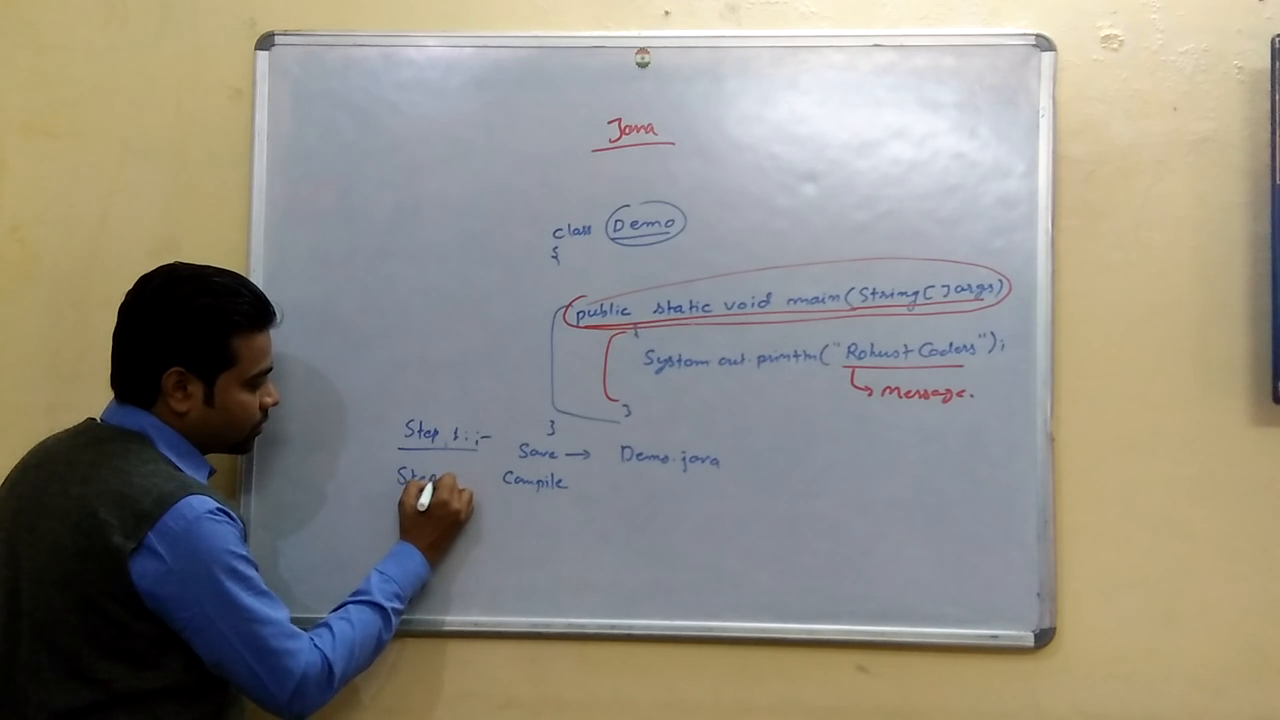 Java
class Demo
{
public static void main(String[]args)
{
System.out.println("Robust Coders");
→ Message.
}
}
Step 1:- Save → Demo.java
Step Compile